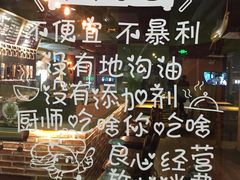 不便宜 不暴利
没有地沟油
没有添加剂
厨师吃啥你吃啥
良心经营